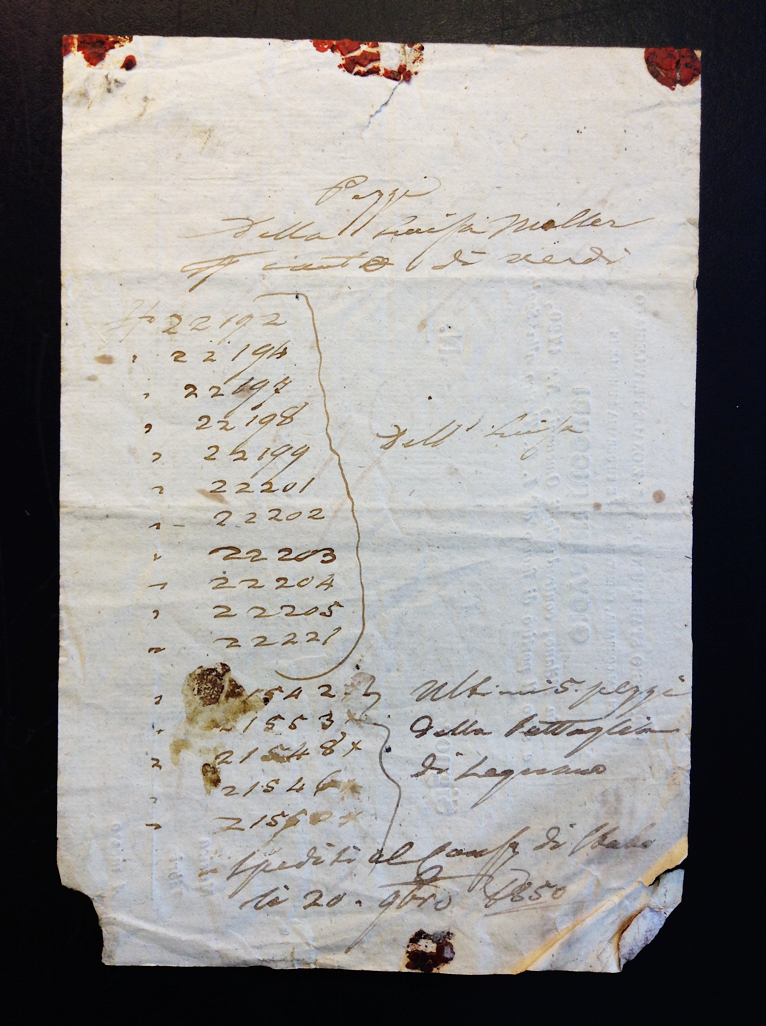 Pezzi
Della Luisa Miller
canto di Verdi
22192
" 22194
" 22197
" 22198
" 22199
" 22201
" 22202
" 22203
" 22204
" 22205
" 22221
Dell' Luisa
" 21542
" 21553 x
" 21548 x
" 21546 x
" 21560 x
Ultimi 5. pezzi
della Battaglia
di Legnano
Spediti al di
li 20. 9bro 1850